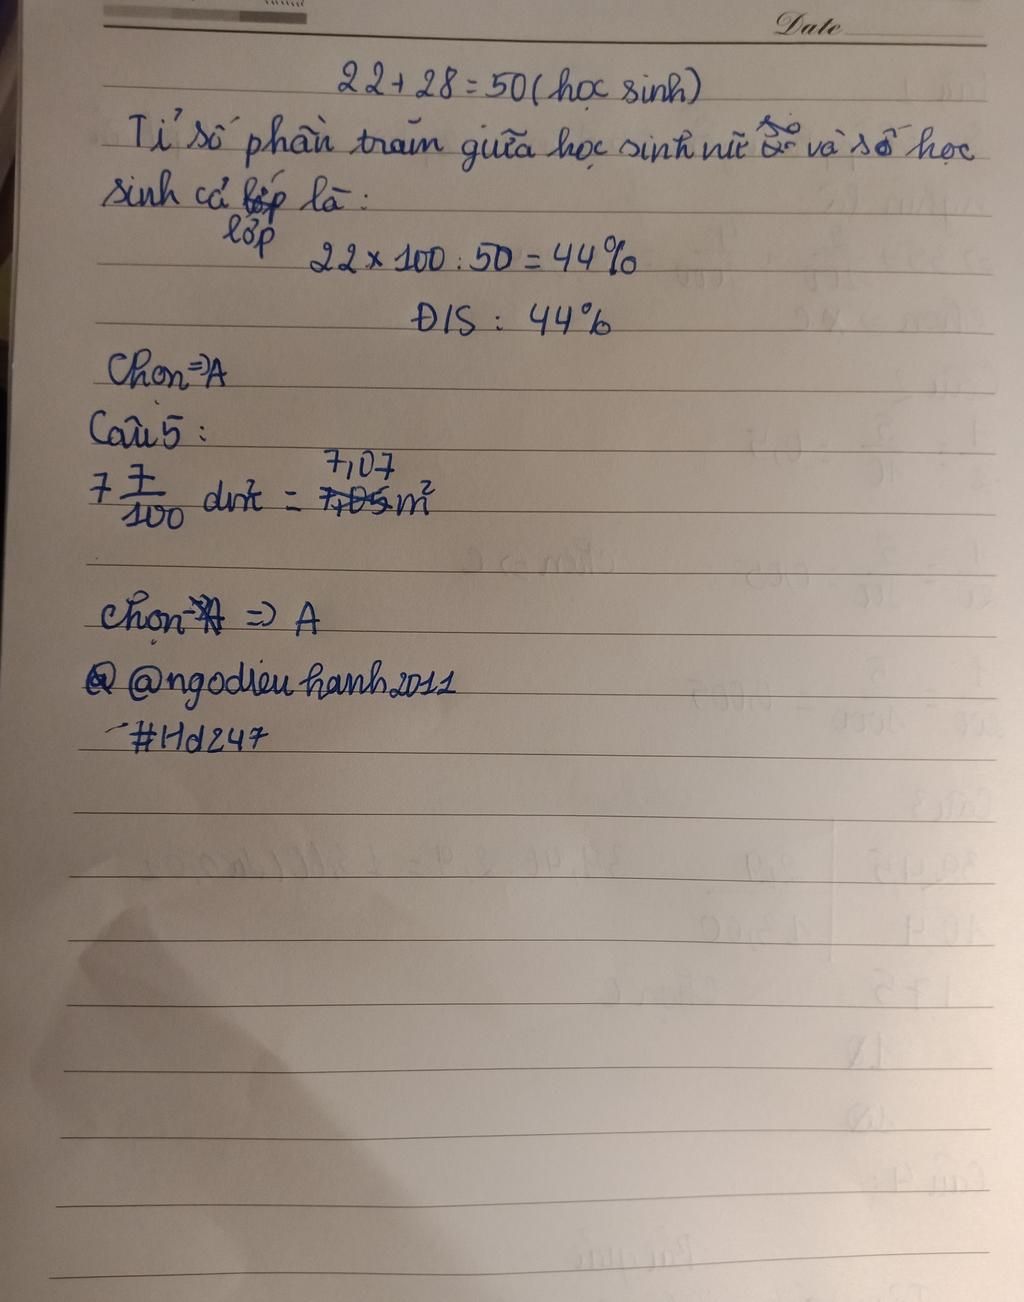 Date
22+28=50(học sinh)
Tỉ số phần trăm giữa học sinh nữ so và số học
sinh cả lớp là:
lớp
22 x 100 : 50 = 44%
Đ/S : 44%
Chọn => A
Câu 5 :
7,07
7 7/100 dm² = 7,05 m²
Chọn => A => A
@ @ngodieuhanh2011
#Hd247